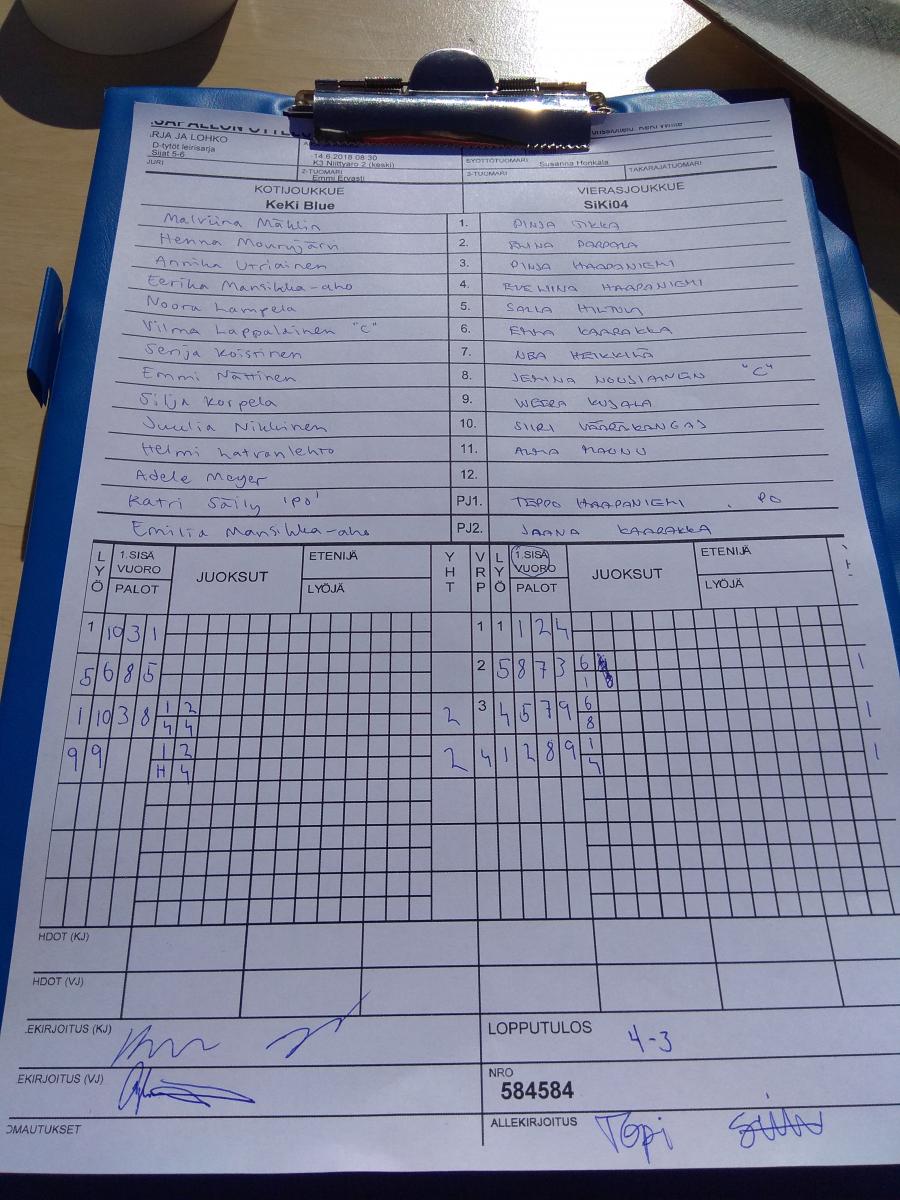 KeKi White
RJA JA LOHKO
D-tytöt leirisarja
Sijat 5-6
14.6.2018 08:30
K3 Niittyaro 2 (keski)
SYÖTTÖTUOMARI Susanna Honkala
JURI 2-TUOMARI Emmi Ervasti 3-TUOMARI TAKARAJATUOMARI
KOTIJOUKKUE VIERASJOUKKUE
KeKi Blue SiKi04
Malviina Mähön 1. PINJA SIKKA
Henna Mourujärvi 2. PARPALA
Annika Utriainen 3. PINJA HAAPANIEMI
Eerika Mansikka-aho 4. EVELIINA HAAPANIEMI
Noora Lampela 5. SALLA HILTULA
Vilma Lappalainen "C" 6. EMMA KAARAKKA
Senja Koistinen 7. NEA HEIKKILÄ
Emmi Nättinen 8. JEMINA NOUSIAINEN "C"
Silja Korpela 9. WEERA KUJALA
Juulia Nikkinen 10. SIIRI VÄÄRÄKANGAS
Helmi Latvanlehto 11. ALMA MAUNU
Adele Meyer 12.
Katri Säily 'PO' PJ1. TEPPO HAAPANIEMI . PO
Emilia Mansikka-aho PJ2. JAANA KAARAKKA
LYÖ 1.SISÄ VUORO PALOT JUOKSUT ETENIJÄ LYÖJÄ YHT VRP LYÖ 1.SISÄ VUORO PALOT JUOKSUT ETENIJÄ LYÖJÄ
1 10 3 1 1 1 1 2 4
5 6 8 5 2 5 8 7 3 6 1
1 1
1 10 3 8 1 2 2 3 4 5 7 9 6 1
4 4 8
9 9 1 2 2 4 1 2 8 9 1 1
H 4 4
HDOT (KJ)
HDOT (VJ)
EKIRJOITUS (KJ) LOPPUTULOS 4-3
EKIRJOITUS (VJ) NRO
584584
OMAUTUKSET ALLEKIRJOITUS Topi